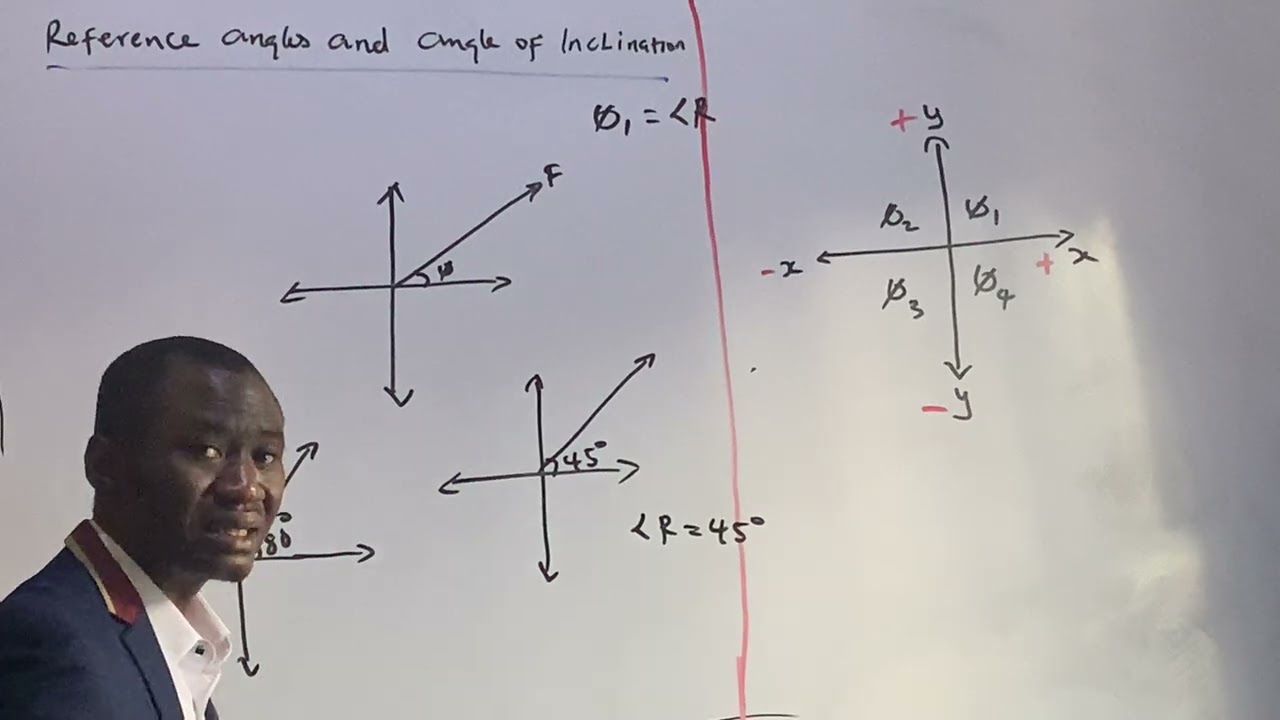 Reference angles and angle of Inclination
Ø₁ = <R
F
Ø
45°
<R = 45°
80°
+y
Ø₂ Ø₁
-x + x
Ø₃ Ø₄
-y